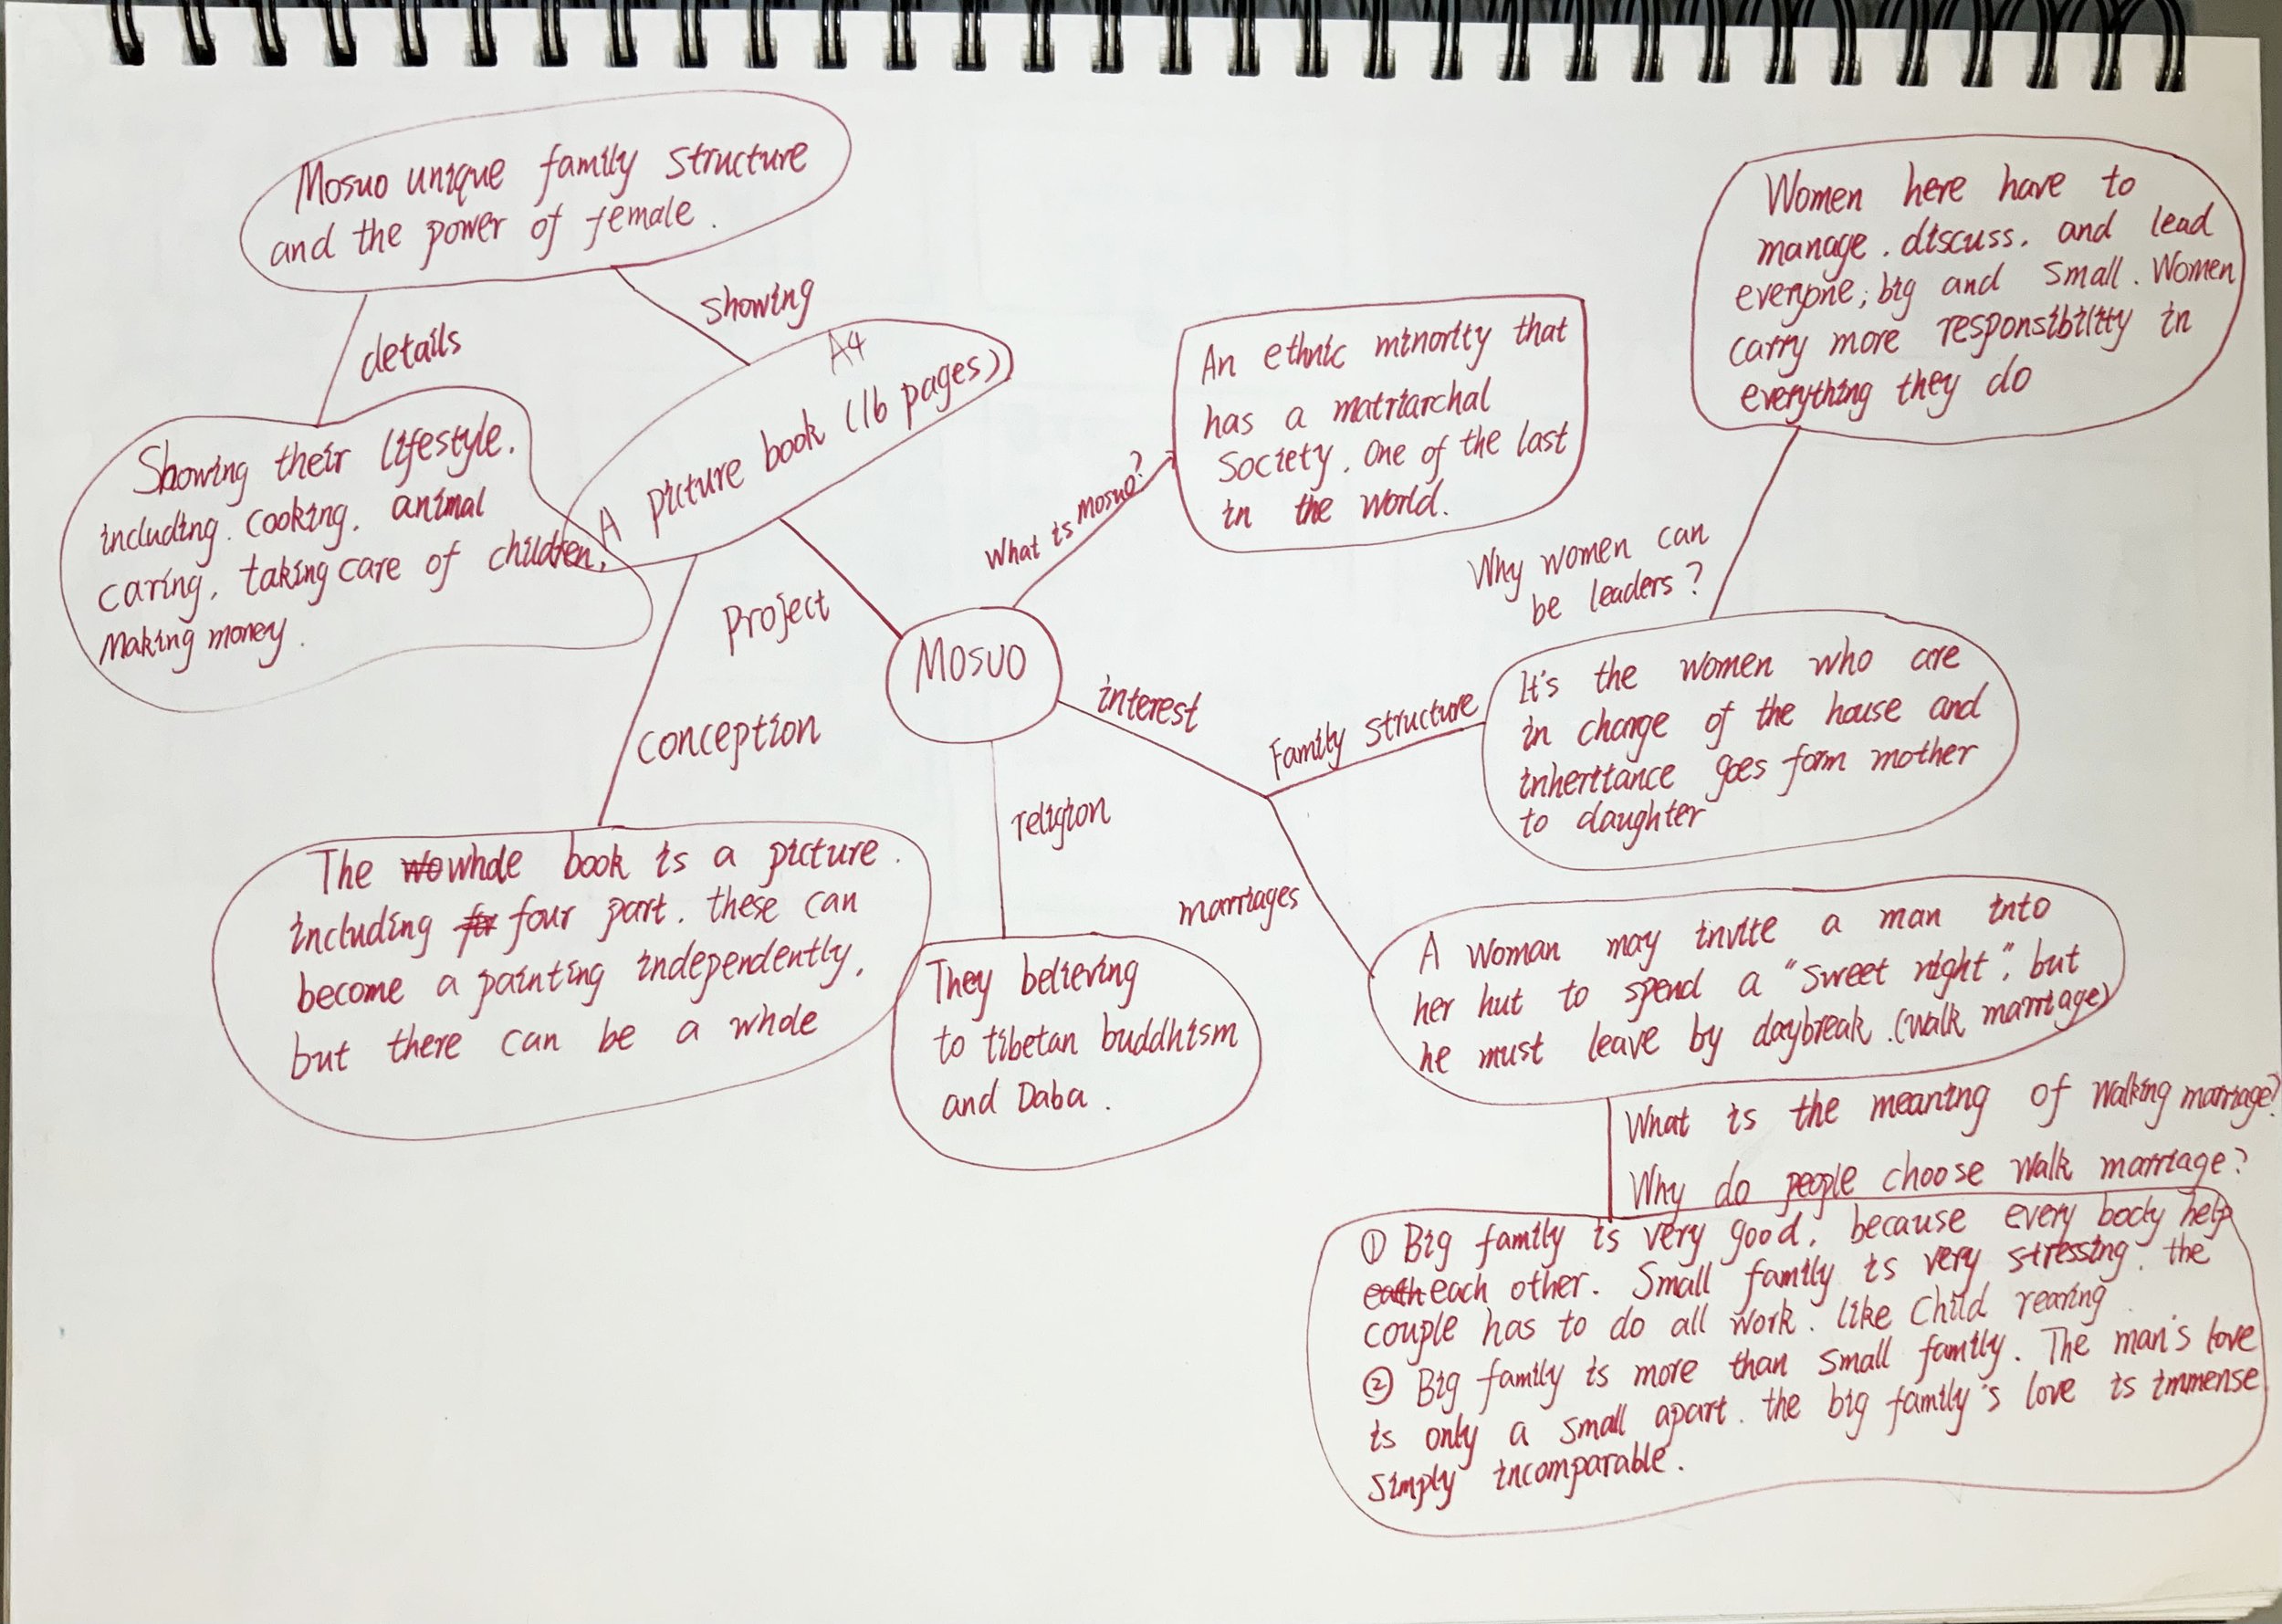 Mosuo unique family structure
and the power of female.
details
showing
Showing their lifestyle.
including. cooking. animal
caring. taking care of children.
Making money.
A4
A picture book (16 pages)
Project
conception
The whole book is a picture.
including four part. these can
become a painting independently,
but there can be a whole
MOSUO
What is mosuo?
An ethnic minority that
has a matriarchal
Society. One of the last
in the world.
religion
They believing
to tibetan buddhism
and Daba.
interest
Family structure
It's the women who are
in charge of the house and
inheritance goes form mother
to daughter
Why women can
be leaders?
Women here have to
manage. discuss. and lead
everyone; big and small. Women
carry more responsibility in
everything they do
marriages
A woman may invite a man into
her hut to spend a "sweet night", but
he must leave by daybreak. (walk marriage)
What is the meaning of walking marriage?
Why do people choose walk marriage?
① Big family is very good, because every body help
each other. Small family is very stressing. the
couple has to do all work. like child rearing
② Big family is more than small family. The man's love
is only a small apart. the big family's love is immense
simply incomparable.